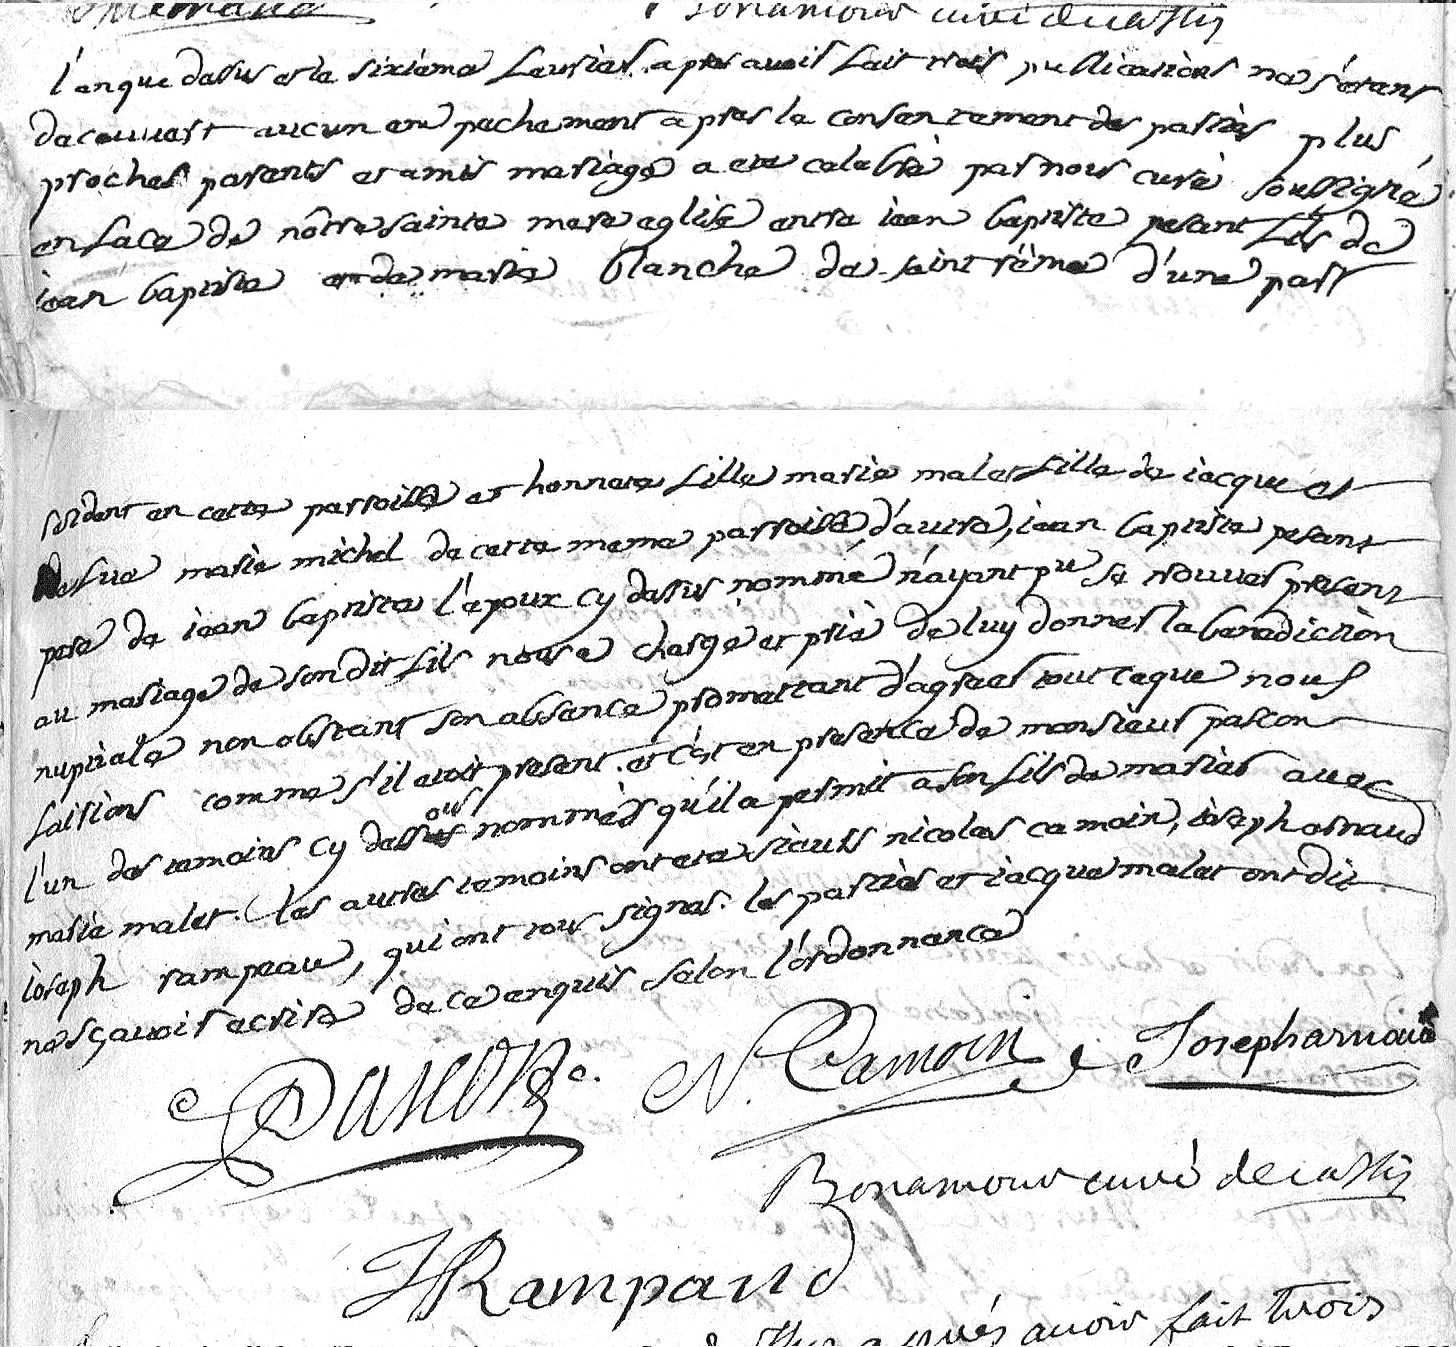 Bonamour curé de cassis
l'an que dessus et le sixieme feurier apres auoir fait trois publications ne s'etant
decouuert aucun empechement apres le consentement des parties plus
proches parents et amis mariage a ete celebré par nous curé soussigné
en face de nôtre sainte mere eglise entre iean baptiste pesant fils de
iean baptiste et de marie blanche de saint réme d'une part
residant en cette parroisse et honnete fille marie malet fille de iacque et
de fue marie michel de cette meme parroisse d'autre, iean baptiste pesant
pere de iean baptiste l'epoux cy dessus nommé n'ayant pu se trouuer present
au mariage de son dit fils nous a chargé et prié de luy donner la benediction
nuptiale non obstant son absence promettant d'agreer tout ce que nous
faisions comme s'il etoit present. et c'est en presence de monsieur pascon
l'un des temoins cy dessous nommés qu'il a permit a son fils de marier auec
marie malet. les autres temoins ont ete sieurs nicolas camoin, ioseph arnaud
ioseph rampeau, qui ont tous signes. les parties et iacque malet ont dit
ne sçauoir ecrire de ce enquis selon l'ordonnance
Pascon N. Camoin Joseph arnaud
Bonamour curé de cassis
J Rampaud
aprés auoir fait trois